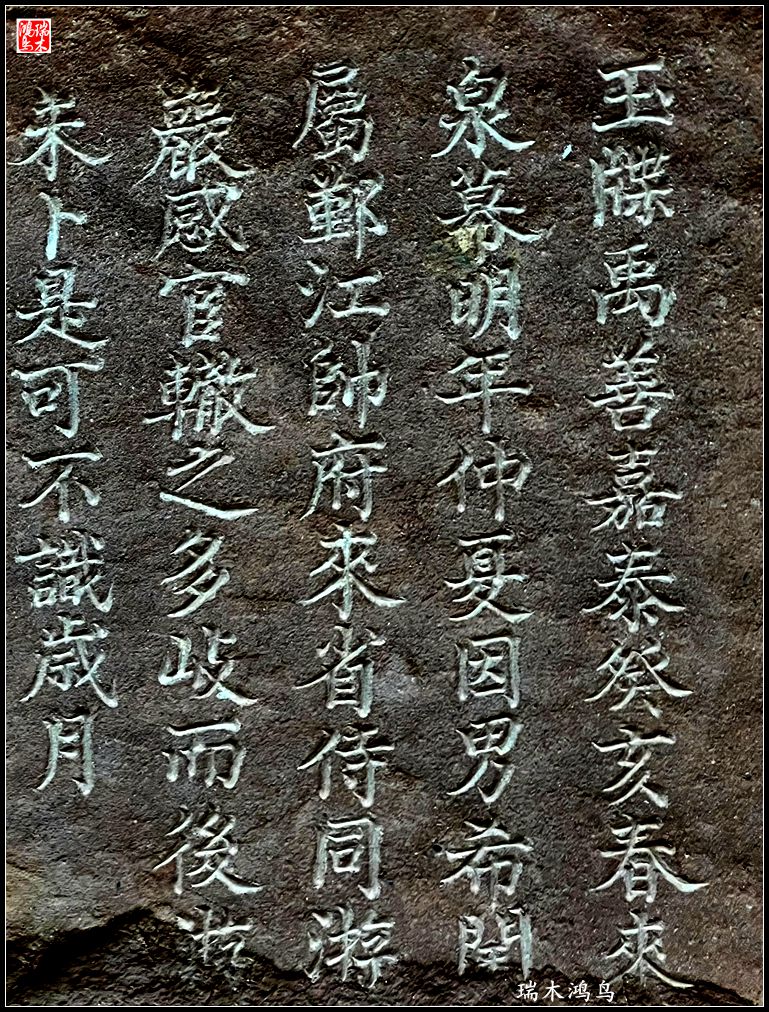 玉牒禹善嘉泰癸亥春來
泉幕明年仲夏因男希
屬鄞江帥府來省侍同游
巖感官轍之多岐而後游
未卜是可不識歲月
瑞木鸿鸟
瑞木鸿鸟